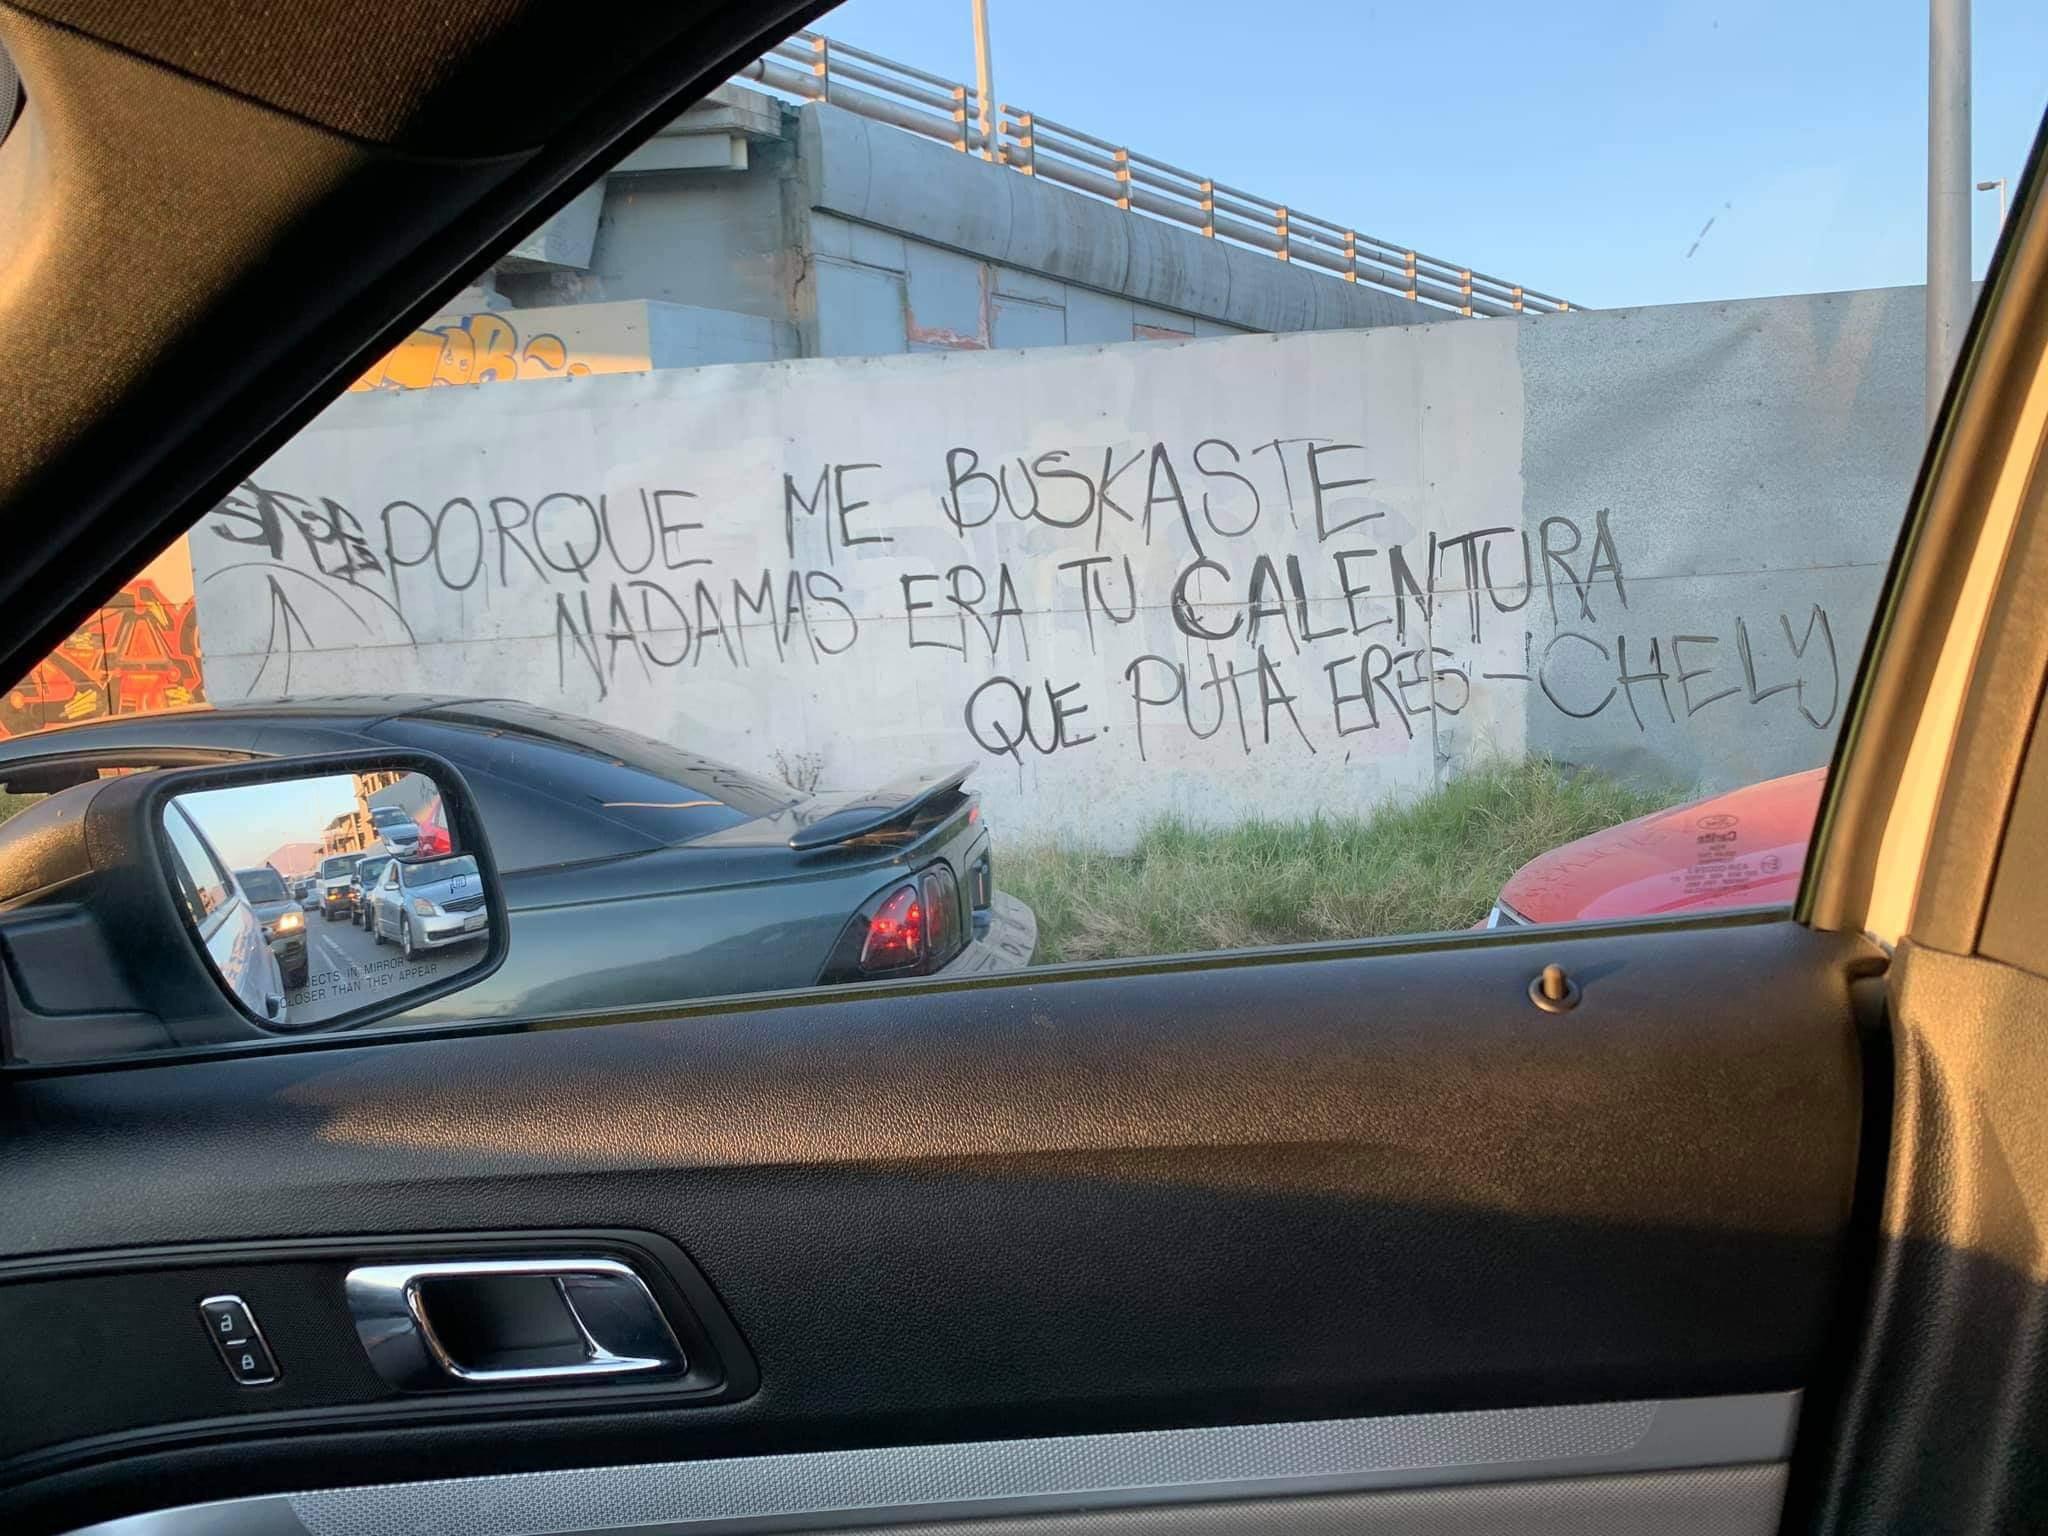 PORQUE ME BUSKASTE
NADAMAS ERA TU CALENTURA
QUE PUTA ERES - CHELY
OBJECTS IN MIRROR
CLOSER THAN THEY APPEAR
Ford